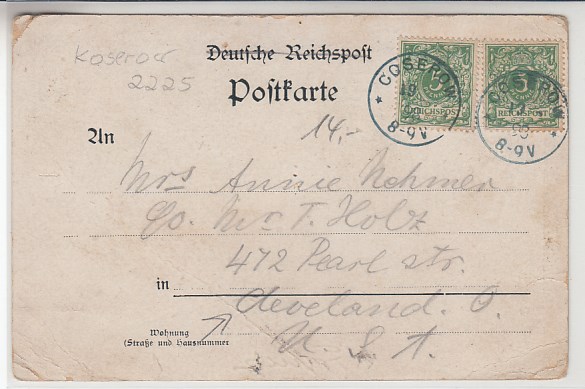 Koserow
2225
Deutsche Reichspost
Postkarte
14,-
COSEROW
8-9V
5
REICHSPOST
COSEROW
8-9V
5
REICHSPOST
An
Mrs Annie Nehmer
Co. Mr T. Holtz
472 Pearl str.
in Cleveland. O.
U. S. A.
Wohnung
(Straße und Hausnummer